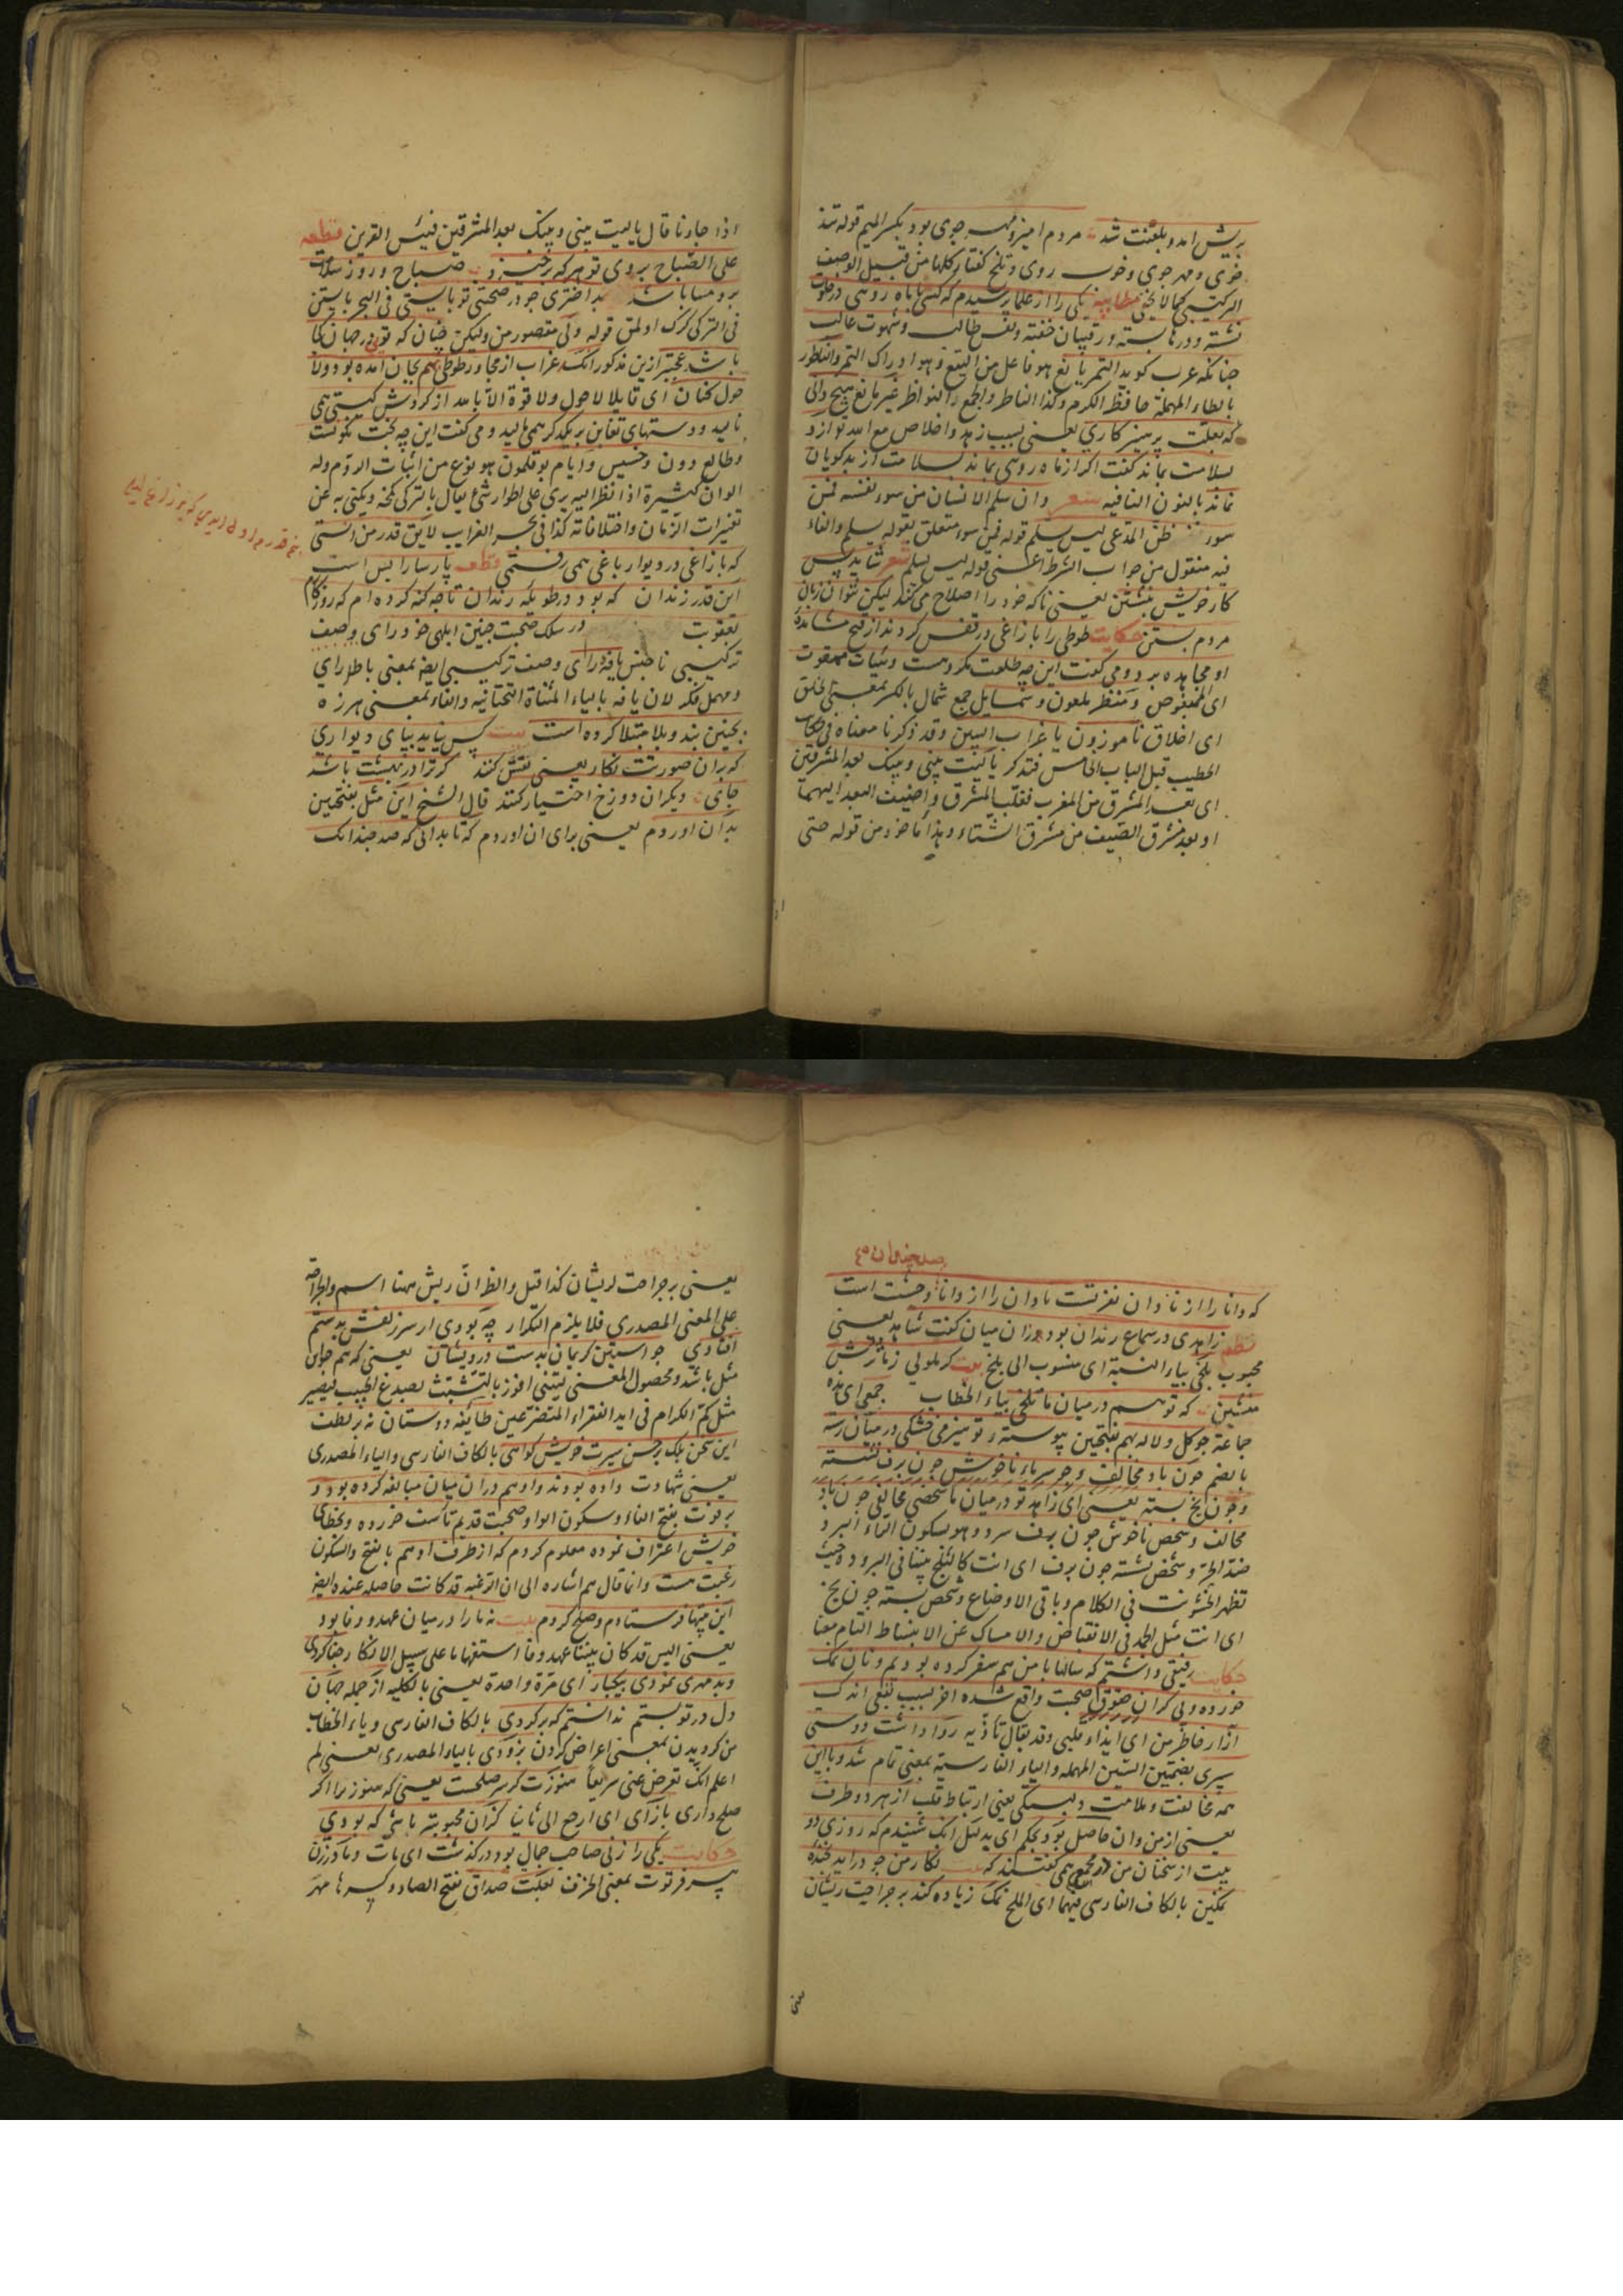 بریش آمد و بلعنت شد مردم آمیز و مهر جوی بود بکسر المیم قوله تند
خوی و مهر جوی و خوب روی و تلخ گفتار کلها من قبیل الوصف
الترکیبی کما لا یخفی مطایبه یکی را از علما پرسیدم که کسی با ماه رویی در خلوت
نشسته و درها بسته و رقیبان خفته و نفس طالب و شهوت غالب
چنانکه عرب گوید التمر یانع هو فاعل من الینع و هو ادراک الثمر والناطور
بالطاء المهملة حافظ الکرم وکذا الناطر والجمع النواطر غیر مانع هیچ دانی
که بعلت پرهیزکاری یعنی بسبب زهد و اخلاص مع الله تو ازو
بسلامت بماند گفت اگر از ماه روی بماند بسلامت از بدگویان
نماند بالنون النافیه شعر وان سلم الانسان من سوء نفسه فمن
سوء ظن المدعی لیس یسلم قوله فمن سوء متعلق بقوله یسلم والفاء
فیه منقول من جواب الشرط اعنی قوله لیس یسلم شعر شاید پس
کار خویش بنشستن یعنی تا که خود را اصلاح می کند لیکن نتوان زبان
مردم بستن حکایت طوطی را با زاغی در قفس کردند از قبح مشاهده
او مجاهده برد و می گفت این چه طلعت مکروهست و هیات ممقوت
ای المبغوض و منظر ملعون و شمایل جمع شمال بالکسر بمعنی الخلق
ای اخلاق ناموزون یا غراب البین وقد ذکرنا معناه فی حکایت
الخطیب قبل الباب الخامس فتذکر یا لیت بینی وبینک بعد المشرقین
ای بعد المشرق من المغرب فغلب المشرق واضیف البعد الیهما
او بعد مشرق الصیف من مشرق الشتاء وهذا ماخوذ من قوله حتی
اذا جاءنا قال یا لیت بینی وبینک بعد المشرقین فبئس القرین قطعه
علی الصباح بروی تو هرکه برخیزد صباح و روز سلامت
برو مسا باشد بداختری چو در صحبتی تو بایستی فی البحر بایستن
فی الترکی کرک اولمق قوله ولی مقصور من ولیکن چنان که تویی در جهان کجا
باشد عجبتر ازین مذکور آنکه غراب از مجاورت طوطی هم بجان آمده بود ولا
حول کنان ای قایلا لا حول ولا قوة الا بالله از گردش گیتی همی
نالید و دستهای تغابن بر یکدگر همی مالید و می گفت این چه بخت نگونست
و طالع دون و خسیس و ایام بوقلمون هو نوع من اثیاب الروم وله
الوان کثیرة اذا نظر الیه یری علی اطوار شتی یقال بالترکی کمخه ویکنی به عن
تغیرات الزمان واختلافاته کذا فی بحر الغرایب لایق قدر من آنستی
که با زاغی در دیوار باغی همی رفتمی قطعه پارسا را بس است
این قدر زندان که بود در طویله رندان تا چه گنه کرده ام که روزگارم
بعقوبت در سلک صحبت چنین ابلهی خود رای وصف
ترکیبی ناجنس یافه رای وصف ترکیبی ایضا بمعنی باطل رای
و مهمل فکر لان یافه بالیاء المثناة التحتانیه والفاء بمعنی هرزه
بچنین بند و بلا مبتلا کرده است بیت کس نیاید بپای دیواری
که بران صورتت نگار یعنی نقش کنند گر ترا در بهشت باشد
جای دیگران دوزخ اختیار کنند قال الشیخ این مثل بفتحتین
بدان آوردم یعنی برای آن آوردم که تا بدانی که صد چندانک
صد چندان که
که دانا را از نادان نفرتست نادان را از دانا وحشت است
نظم زاهدی در سماع رندان بود زان میان گفت شاهد یعنی
محبوب بلخی بیاء النسبة ای منسوب الی بلخ بیت گر ملولی ز ما ترش
منشین که تو هم در میان ما تلخی بیاء الخطاب جمعی ای هذه
جماعة چو گل و لاله بهم بفتحتین پیوسته تو هیزمی خشکی در میان رسته
بالضم چون باد مخالف و چو سرما ناخوش چون برف نشسته
و چون یخ بسته یعنی ای زاهد تو در میان ما شخصی مخالفی چون باد
مخالف و شخص ناخوش چون برف سرد وهو بسکون الراء البرد
ضد الحر و شخص نشسته چون برف ای انت کالثلج بیننا فی البرد و حیث
تظهر الخشونت فی الکلام و باقی الاوضاع و شخص بسته چون یخ
ای انت مثل الجمد فی الانقباض والامساک عن الانبساط التام معنا
حکایت رفیقی داشتم که سالها با من هم سفر کرده بودیم و نان نمک
خورده و بی کران حقوق صحبت واقع شده آخر بسبب نفعی اندک
آزار خاطر من ای ایذاء قلبی وقد یقال تأذیه روا داشت دوستی
سپری بضمتین السین المهمله والیاء الفارسیة بمعنی تمام شد و با این
همه مخالفت و ملامت دلبستگی یعنی ارتباط قلب از هر دو طرف
یعنی از من و ان حاصل بود بحکم ای بدلیل آنک شنیدم که روزی دو
بیت از سخنان من در مجمع همی گفتند که نگار من چو درآید بخنده
نمکین بالکاف الفارسی فیهما ای الملح نمک زیاده کند بر جراحت ریشان
یعنی
یعنی بر جراحت لریشان کذا قیل والظ ان ریش ههنا اسم والجراحه
علی المعنی المصدری فلا یلزم التکرار چه بودی ار سر زلفش بدستم
افتادی چو آستین کریمان بدست درویشان یعنی که هم چون
مثل باشد ومحصول المعنی لیتنی افوز بالتشبث بصدغ الحبیب فیصیر
مثل کم الکرام فی اید الفقراء المتضرعین طائفه دوستان نه بر لطف
این سخن بلک بر حسن سیرت خویش گواهی بالکاف الفارسی والیاء المصدری
یعنی شهادت داده بودند و او هم دران میان مبالغه کرده بود و
بر فوت بفتح الفاء وسکون الواو صحبت قدیم تأسف خورده و بخطای
خویش اعتراف نموده معلوم کردم که از طرف او هم بالفتح والسکون
رغبت هست وانما قال هم اشاره الی ان الرغبه قد کانت حاصله عنده ایضا
این بیتها فرستادم و صلح کردم بیت نه ما را در میان عهد و وفا بود
یعنی الیس قد کان بیننا عهد وفا استفهاما علی سبیل الانکار جفا کردی
و بد مهری نمودی بیکبار ای مرة واحدة یعنی بالکلیه از جمله جهان
دل در تو بستم ندانستم که برگردی بالکاف الفارسی ویاء الخطاب
من گردیدن بمعنی اعراض کردن بزودی بالیاء المصدری یعنی لم
اعلم انک تعرض عنی سریعا هنوزت گر سر صلحست یعنی که هنوز ترا اگر
صلح داری بازآی ای ارجع الی ثانیا کزان محبوبتر باشی که بودی
حکایت یکی را زنی صاحب جمال بود درگذشت ای مات و مادر زن
پیر فرتوت بمعنی الخرف بعلت صداق بفتح الصاد وکسرها مهر